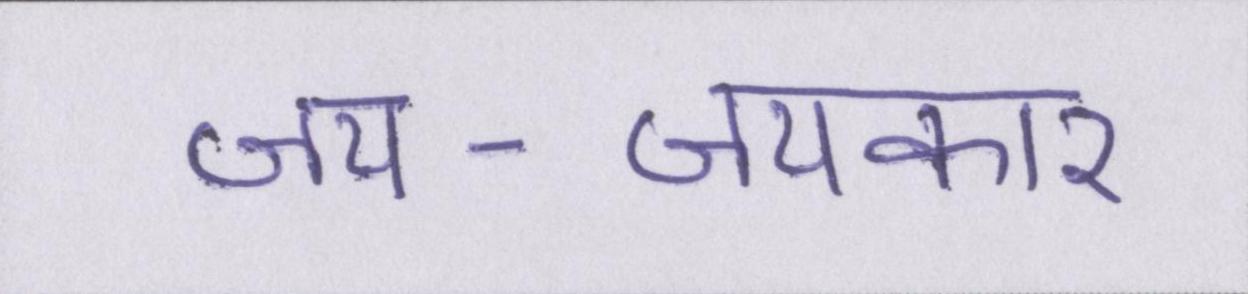 जय - जयकार